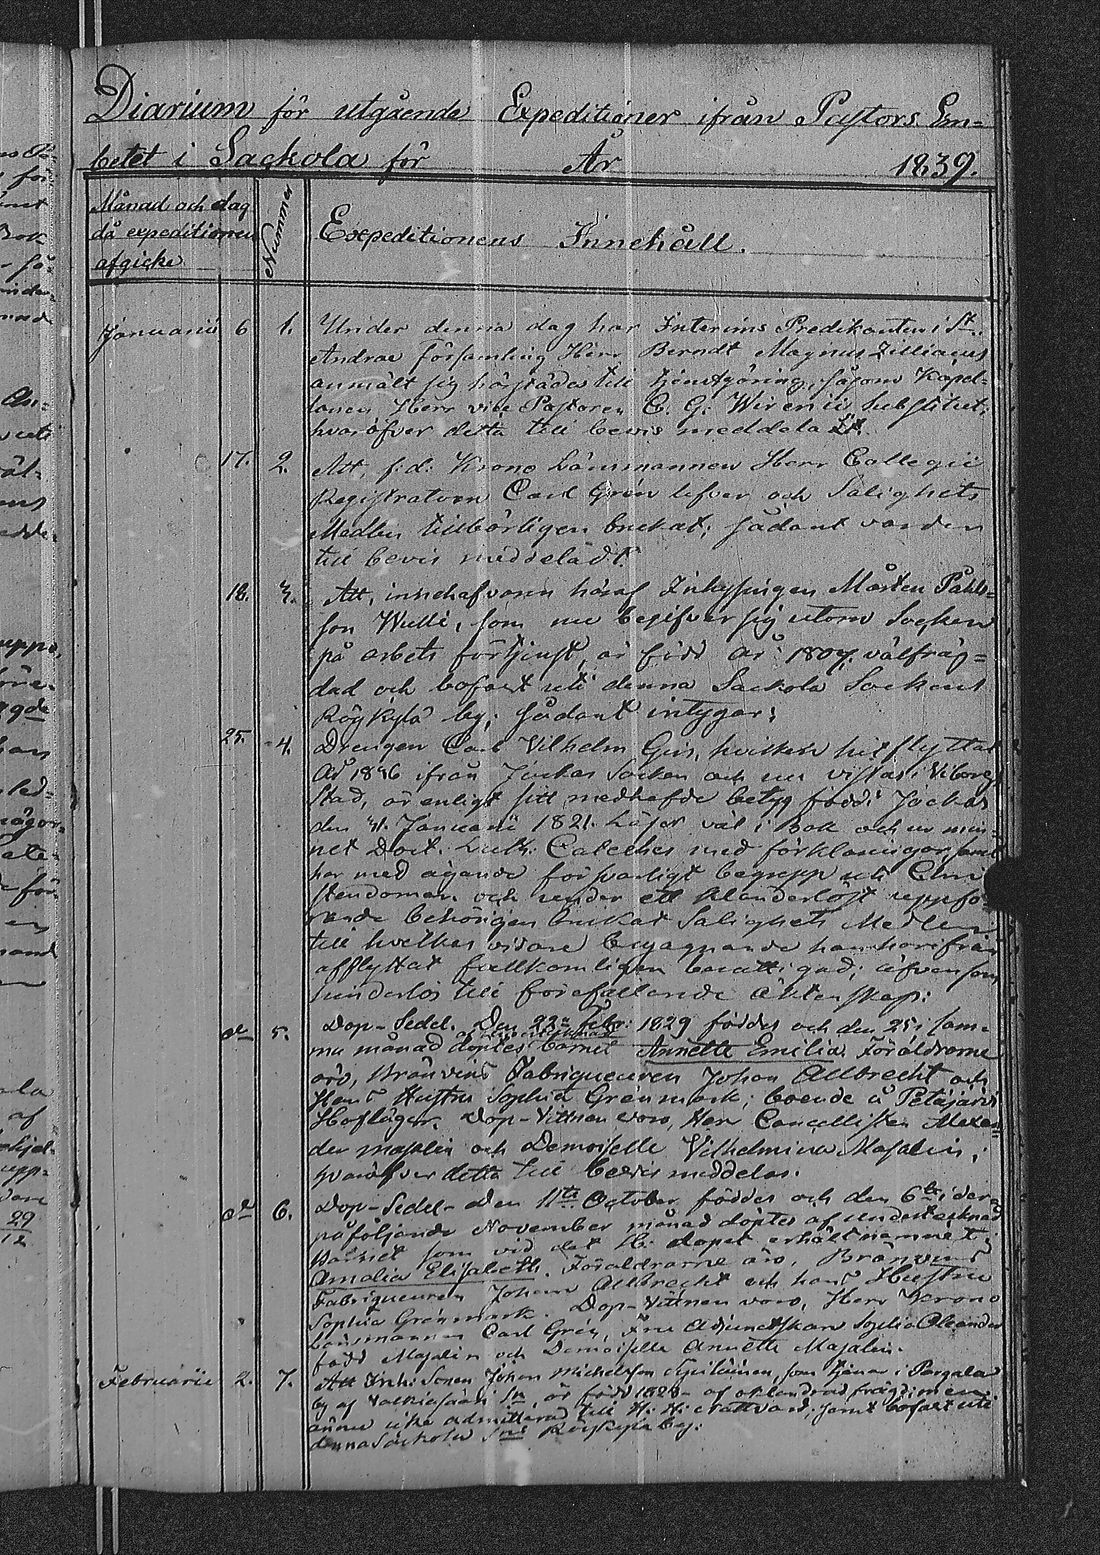 Diarium för utgående Expeditioner ifrån Pastors Em=
betet i Sackola för År 1839.
Månad och dag
då expeditionen
afgick
Nummer
Expeditionens Innehåll.
Januarii 6 1. Under denna dag har Interims Predikanten i St.
Andrae församling Herr Berndt Magnus Zilliacus
anmält sig härstädes till tjenstgöring, såsom Kapel-
lanen Herr vice Pastoren C. G. Wirenii Substitut;
hvaröfver detta till bevis meddelas
17. 2. Att f: d: Krono Länsmannen Herr Collegii
Registratorn Carl Grén lefver och Salighets
Medlen tillbörligen brukat; sådant varder
till bevis meddeladt.
18. 3. Att, innehafvaren häraf Mårten Påhls=
son Wulli, som nu begifver sig utom Socken
på arbets förtjenst, är född år 1807. välfräg=
dad och bofast uti denna Sackola Sockens
Röykylä by; sådant intygar;
25. 4. Drengen Carl Vilhelm hvilken hit flyttat
År 1836 ifrån Jockas Socken och nu vistas i Viborgs
Stad, är enligt sitt medhafde betyg född i Jockas
den Januarii 1821. Läser väl i Bok och ur min-
net Doct. Luth. Cateches med förklaringar, samt
har med ägande försvarligt begrepp uti Chri-
stendomen och under ett klanderlöst uppfö-
rande behörigen brukat Salighets Medlen
till hvilkas vidare begagnande han härifrån
afflyttat fullkomligen berättigad; äfvensom
hinderlös till förefallande Äktenskap:
do 5. Dop-Sedel. Den 22a Febr: 1829 föddes och den 25 i sam-
ma månad döptes barnet Annette Emilia. Föräldrarne
äro, Bränvins Fabriqueuren Johan Allbrecht och
Hans Hustru Sophia Grönmark; boende å Petäjärvi
Hofläger. Dop-Vittnen voro, Herr Cancellisten Alexan=
der Masalin och Demoiselle Vilhelmina Masalin;
hvaröfver detta till bevis meddelas.
do 6. Dop-Sedel- Den 11te October föddes och den 6te i der-
påföljande November månad döptes af undertecknad
Barnet som vid det H. dopet erhållit namnet:
Amalia Elisabeth. Föräldrarne äro, Bränvins
Fabriqueuren Johan Allbrecht och hans Hustru
Sophia Grönmark. Dop-Vittnen voro, Herr Krono
Länsmannen Carl Grén, Fru Adjunctskan Sophia Oleander
född Masalin och Demoiselle Annette Masalin.
Februarii 2. 7. Att Sonen Johan Michelsson som tjenar i Pergala
by af Valkiasaari Sn, är född 1823- af oklandrad frägd men
ännu icke admitterad till H. H. Nattvard, samt bofast uti
denna Sackola Sns Röykylä by.